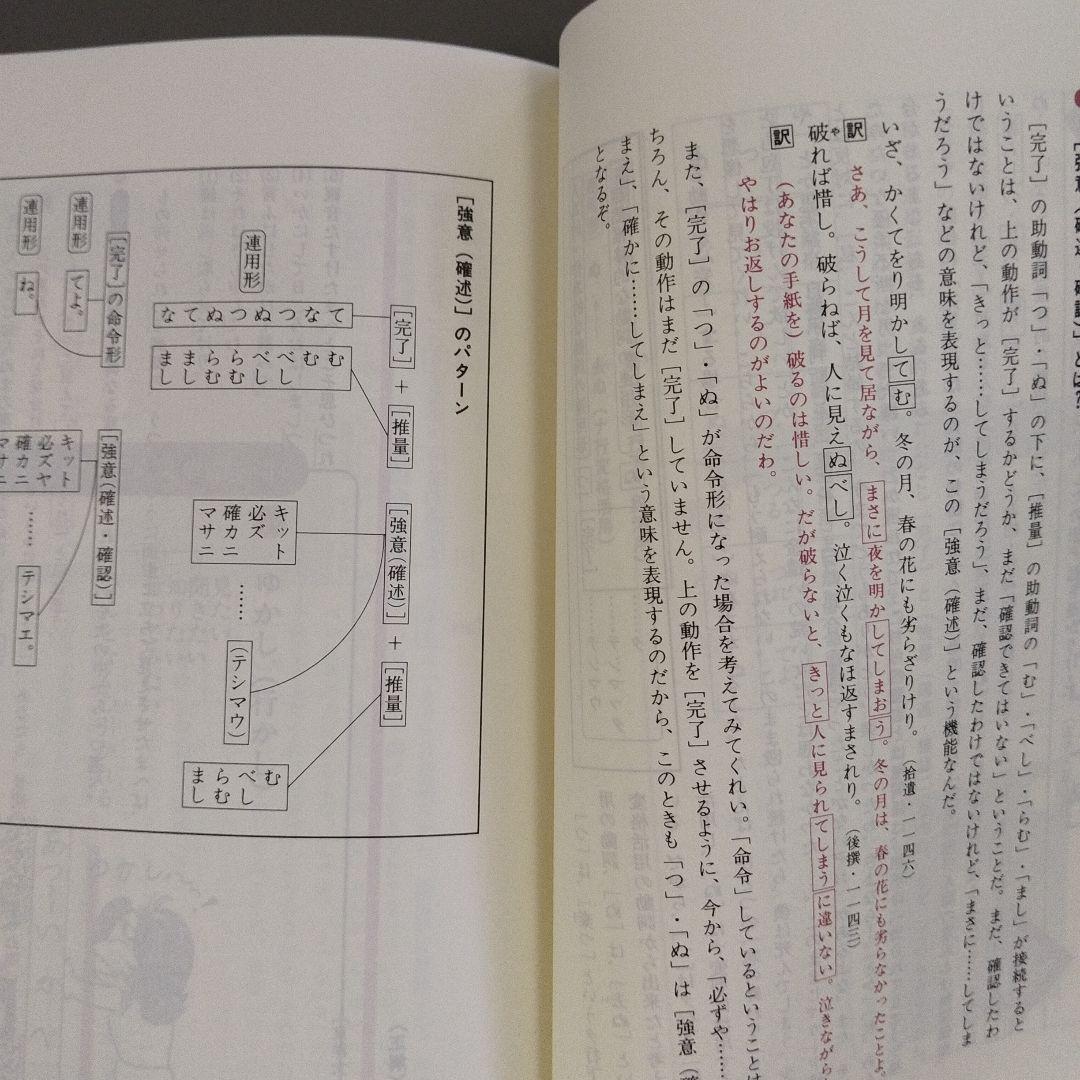 ［強意（確述・確認）］とは
［完了］の助動詞「つ」・「ぬ」の下に、［推量］の助動詞の「む」・「べし」・「らむ」・「まし」が接続すると
いうことは、上の動作が［完了］するかどうか、まだ「確認できてはいない」ということだ。まだ、確認したわ
けではないけれど、「きっと……してしまうだろう」、まだ、確認したわけではないけれど、「まさに……してしま
うだろう」などの意味を表現するのが、この［強意（確述）］という機能なんだ。
いざ、かくてをり明かしてむ。冬の月、春の花にも劣らざりけり。（拾遺・一一四六）
訳 さあ、こうして月を見て居ながら、まさに夜を明かしてしまおう。冬の月は、春の花にも劣らなかったことよ。
破れば惜し。破らねば、人に見えぬべし。泣く泣くもなほ返すまされり。（後撰・一一四三）
訳 （あなたの手紙を）破るのは惜しい。だが破らないと、きっと人に見られてしまうに違いない。泣きながら
やはりお返しするのがよいのだわ。
また、［完了］の「つ」・「ぬ」が命令形になった場合を考えてみてくれい。「命令」しているということは
ちろん、その動作はまだ［完了］していません。上の動作を［完了］させるように、今から、「必ずや……
まえ」、「確かに……してしまえ」という意味を表現するのだから、このときも「つ」・「ぬ」は［強意（確
となるぞ。
［強意（確述）］のパターン
［完了］＋［推量］
［強意（確述）］＋［推量］
連用形
て な つ ぬ つ ぬ て な
む む べし べし らむ らむ まし まし
キット
必ズ
確カニ
マサニ
……
（テシマウ）
む
べし
らむ
まし
［完了］の命令形
［強意（確述・確認）］
連用形 てよ。
連用形 ね。
キット
必ズヤ
確カニ
マサニ
……
テシマエ。